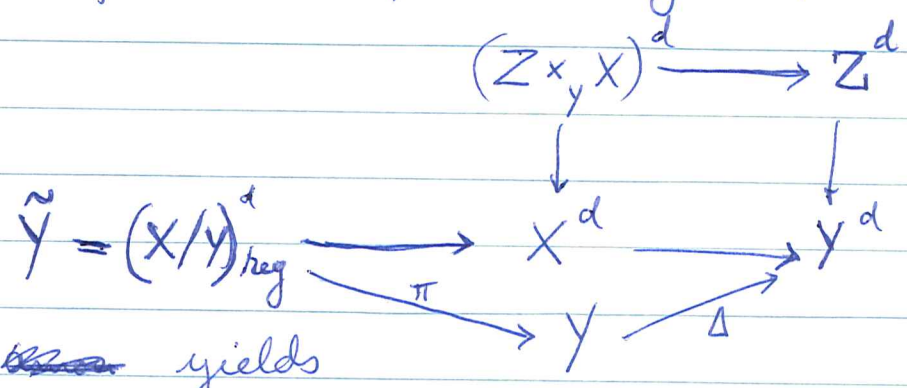 (Z ×_y X)^d → Z^d
Ỹ = (X/Y)^d_reg → X^d → Y^d
π Y Δ
yields